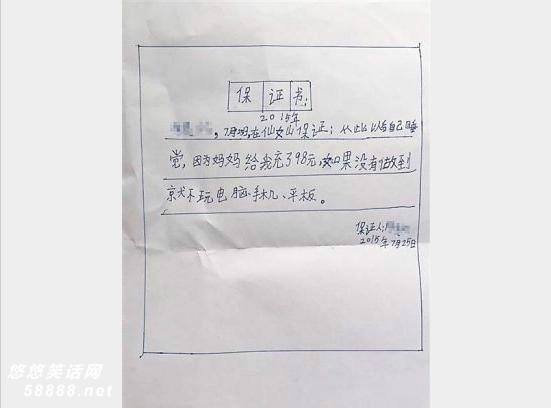 保证书:
2015年
,7月25日,在仙女山保证:从此以后自己睡
觉,因为妈妈给我充了98元,如果没有做到
就不玩电脑、手机、平板。
保证人:
2015年7月25日
悠悠笑话网
58888.net